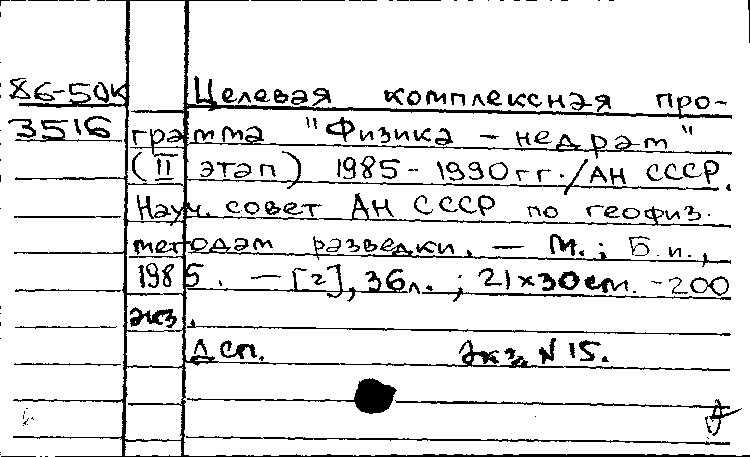 86-50К Целевая комплексная про-
3516 грамма "Физика - недрам"
(II этап) 1985-1990 гг. / АН СССР.
Науч. совет АН СССР по геофиз.
методам разведки. — М.: Б.и.,
1985. — [2], 36л.; 21x30см. -200
экз.
Дсп. Экз. N 15.